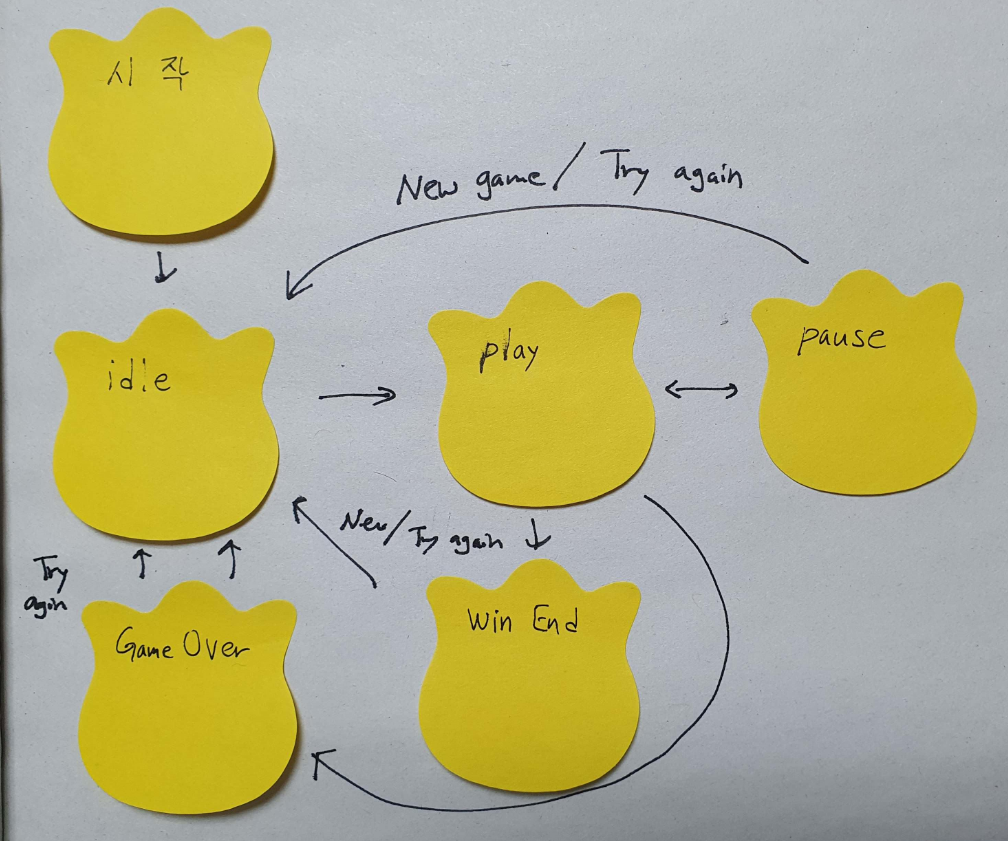 시작
New game / Try again
idle
play
pause
New / Try again
Try
again
Game Over
Win End